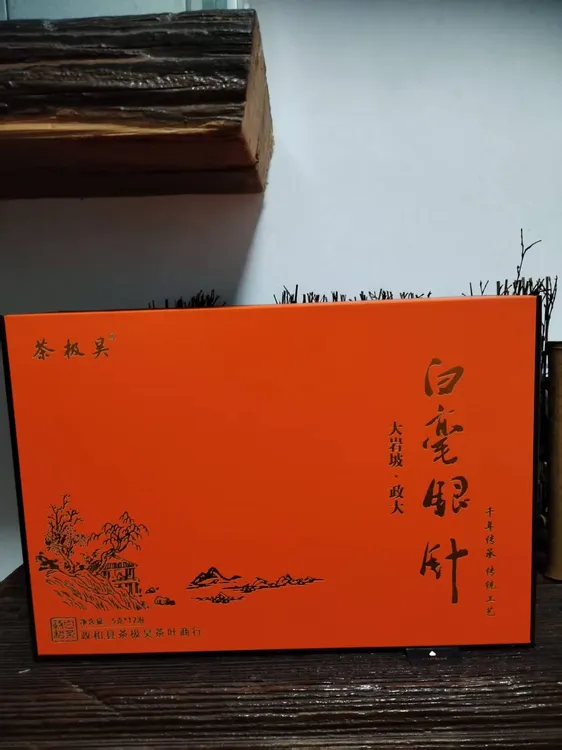 茶极昊
白毫银针
大岩坡·政大
千年传承 传统工艺
净含量：5克*12泡
政和县茶极昊茶叶商行